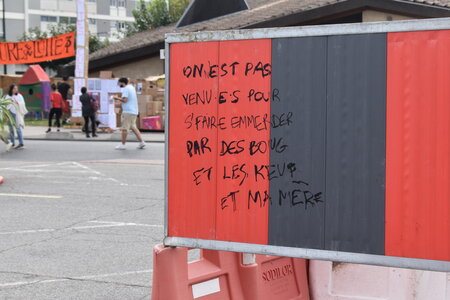 ON EST PAS
VENU·E·S POUR
S'FAIRE EMMERDER
PAR DES BOUG
ET LES KEUS
ET MA MÈRE
SODILOR